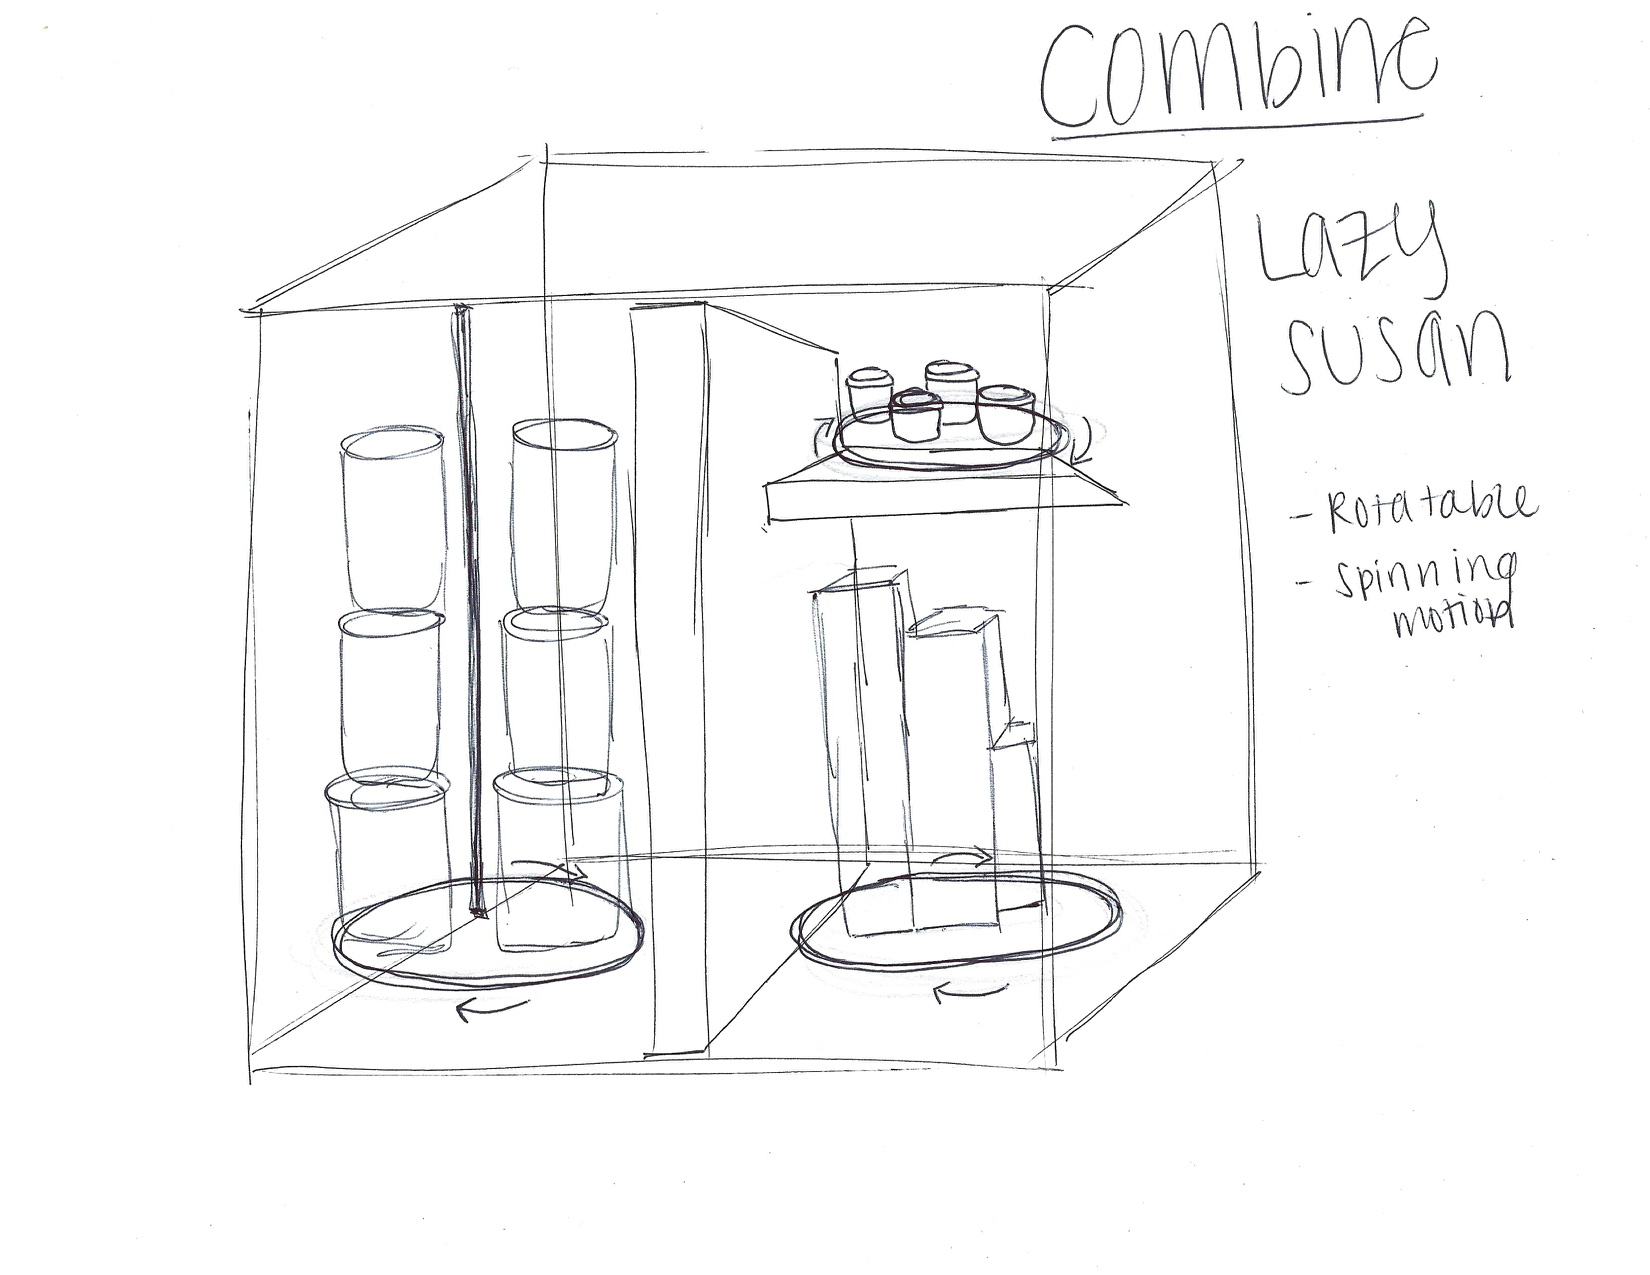 COMBINE
LAZY
SUSAN
- Rotatable
- spinning
motion